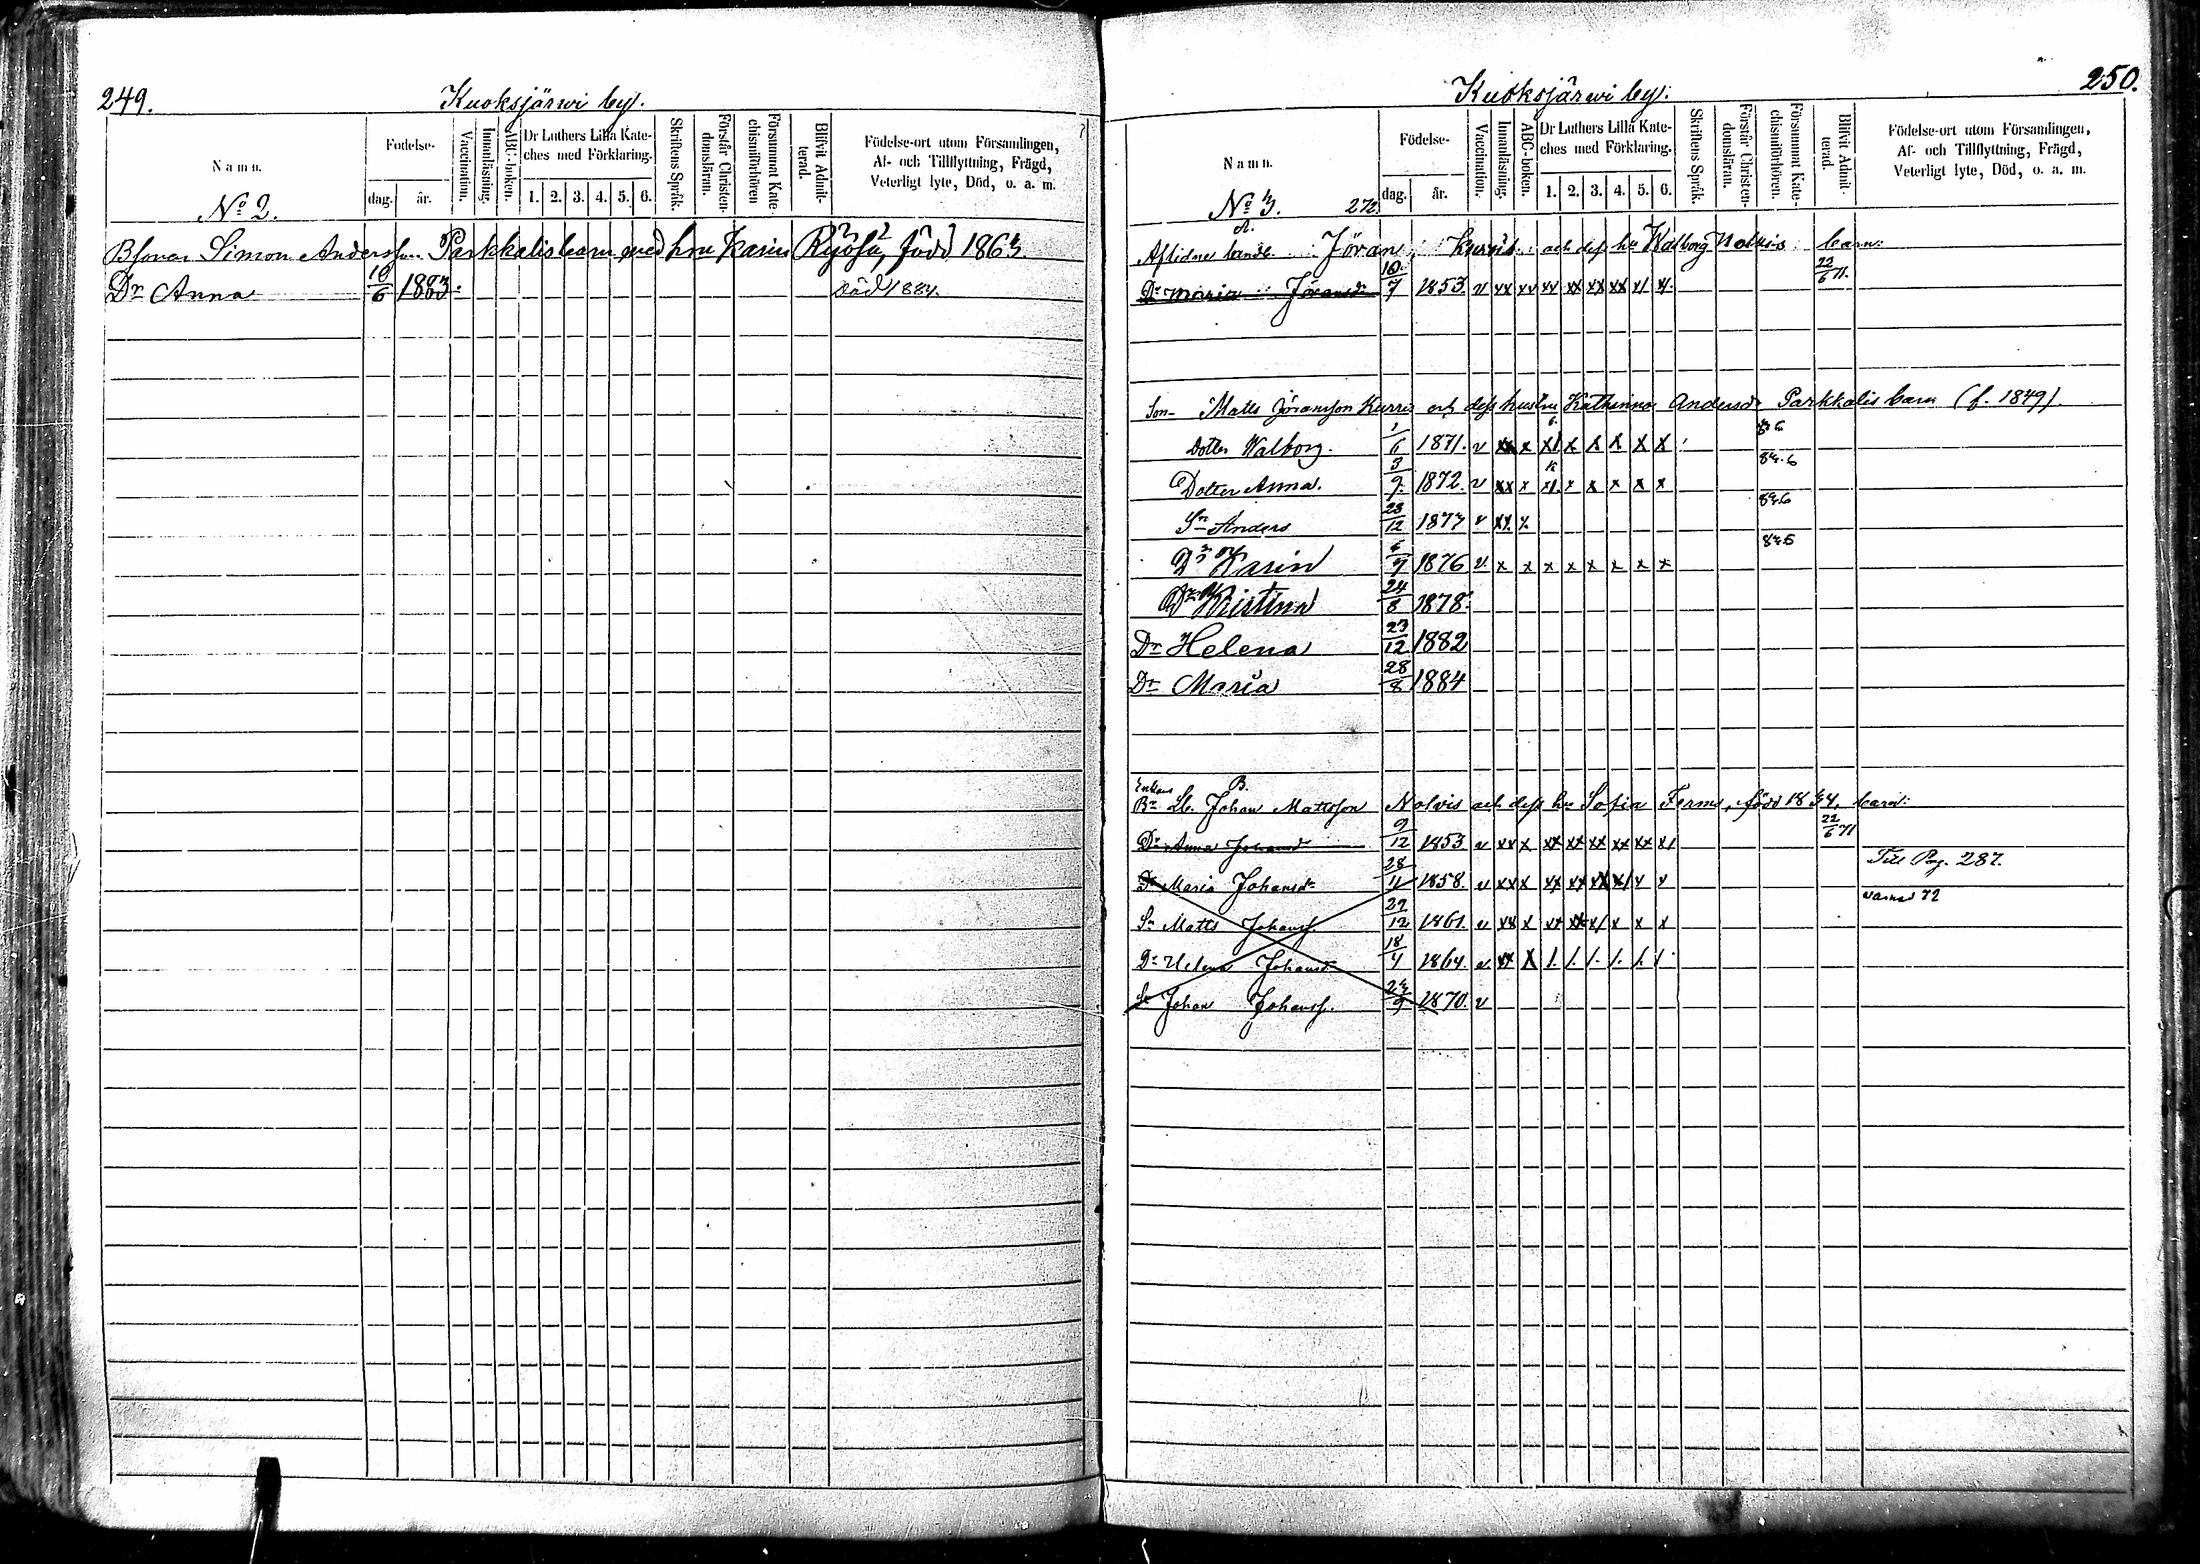 249.
Kuoksjärwi by.
Namn.
Födelse-
dag.
år.
Vaccination.
Innanläsning.
ABC-boken.
Dr Luthers Lilla Kate-
ches med Förklaring.
1. 2. 3. 4. 5. 6.
Skriftens Språk.
Förstår Christen-
domsläran.
Försummat Kate-
chismiförhören
Blifvit Admit-
terad.
Födelse-ort utom Församlingen,
Af- och Tillflyttning, Frägd,
Veterligt lyte, Död, o. a. m.
No 2.
Simon Anderss. Parkkalis barn med hru Karin född 1863.
Dr Anna 10/6 1883. Död 1884.
250.
Kuoksjärwi by.
Namn.
Födelse-
dag.
år.
Vaccination.
Innanläsning.
ABC-boken.
Dr Luthers Lilla Kate-
ches med Förklaring.
1. 2. 3. 4. 5. 6.
Skriftens Språk.
Förstår Christen-
domsläran.
Försummat Kate-
chismiförhören.
Blifvit Admit-
terad.
Födelse-ort utom Församlingen,
Af- och Tillflyttning, Frägd,
Veterligt lyte, Död, o. a. m.
No 3. 272.
A.
Aflidne Jöran Kurris och dess hu Walborg Nolvis barn:
Dr Maria Göransdr 10/7 1853 v xx xx xx xx xx xx x/ x/. 22/6 71.
Son Matts Göransson Kurris och dess hustru Katharina Andersdr Parkkalis barn (f. 1849).
Dotter Walborg. 1/6 1871. v xx x x/ x x x x x 84.6
Dotter Anna. 3/9. 1872. v xx x x/. x x x x x 84.6
Sn Anders 23/12 1873 v xx x 84.6
Dr Karin 1876 v x x x x x x x x 84.6
Dr Kristina 24/8 1878.
Dr Helena 23/12 1882
Dr Maria 28/8 1884
B.
Enkans
Johan Mattsson Nolvis och dess hu Sofia född barn:
Dr Anna Johansd 9/12 1853 v xx x xx xx xx xx xx x/ 22/6 71
Dr Maria Johansdr 28/11 1858. v xx x Till Pag. 287.
Sn Matts Johanss. 1861. v xx x
Dr Helena Johansdr 18/4 1864. v xx x /. /. /. /. /. /.
Sn Johan Johanss. 1870. v